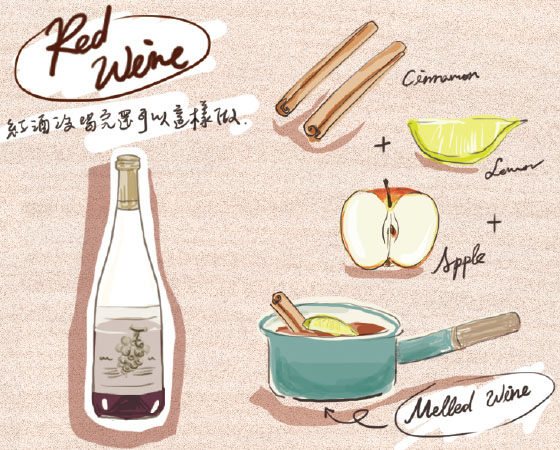 Red
Wine
紅酒沒喝完還可以這樣做.
Cinnamon
+
Lemon
+
Apple
Melled Wine